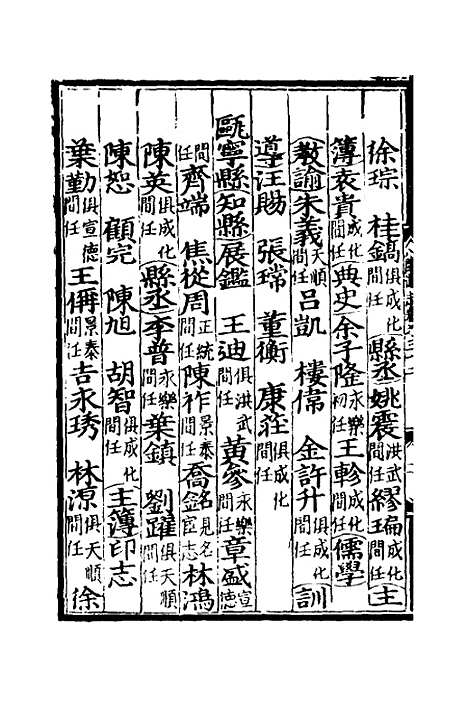 徐琮 桂鎬俱成化間任縣丞姚震洪武間任繆瑜成化間任主
簿袁貴成化間任典史余子隆永樂初任王軫成化間任儒學
教諭朱義天順間任呂凱 樓偉 金許升俱成化間任訓
導汪賜 張瑞 董衡 康莊俱成化間任
甌寧縣知縣展鑑 王迪俱洪武間任黃參永樂間任章盛宣德
間任齊端 焦從周正統間任陳祚景泰間任喬銘見名宦志林鴻
陳英俱成化間任縣丞李普永樂間任葉鎮 劉躍俱天順間任
陳恕 顧完 陳旭 胡智俱成化間任主簿印志
葉勤俱宣德間任王偁景泰間任吉永琇 林源俱天順間任徐